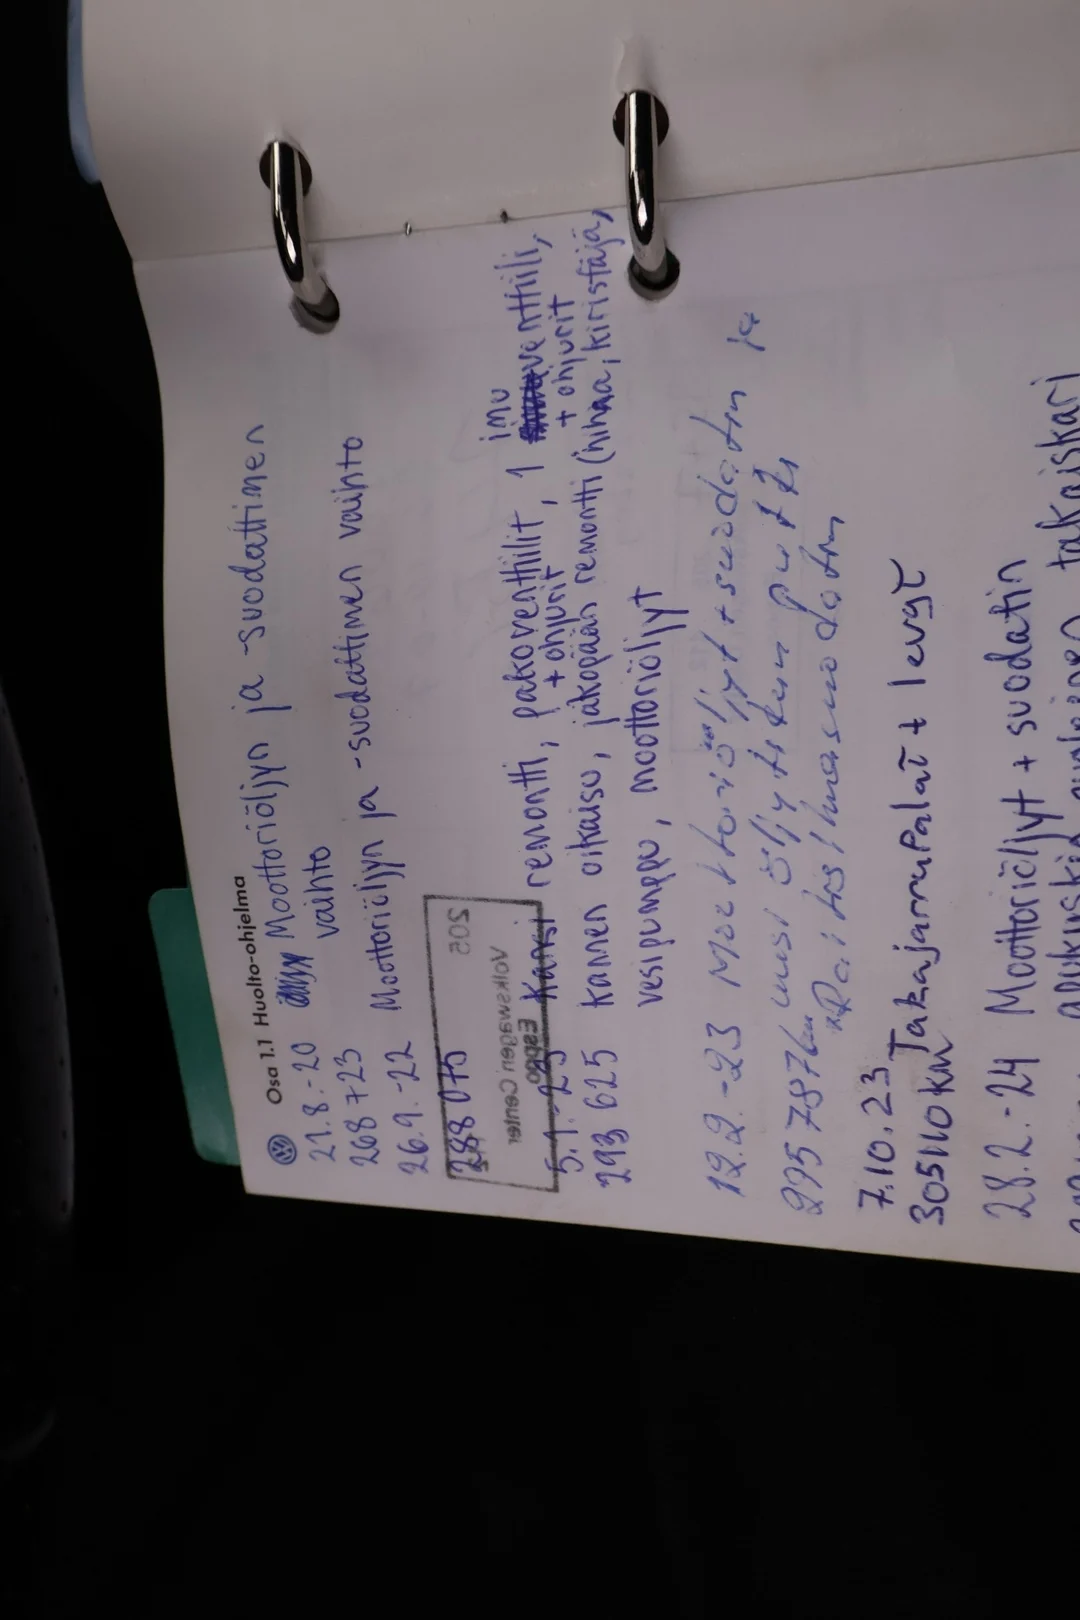 Osa 1.1 Huolto-ohjelma
21.8.-20 Moottoriöljyn ja -suodattimen
268 723 vaihto
26.9.-22 Moottoriöljyn ja -suodattimen vaihto
288 075
205
Volkswagen Center
Espoo
imu
5.1.-23 Kansi remontti, pakoventtiilit, 1 venttiili,
+ ohjurit + ohjurit
293 625 kannen oikaisu, jakopään remontti (hihna, kiristäjä,
vesipumppu, moottoriöljyt
12.2.-23 Moottoriöljyt + suodatin ja
295787km uusi öljytikun putki
ilmasuodatin
7.10.23 Takajarrupalat + levyt
305110 km
28.2.-24 Moottoriöljyt + suodatin
takaiskari